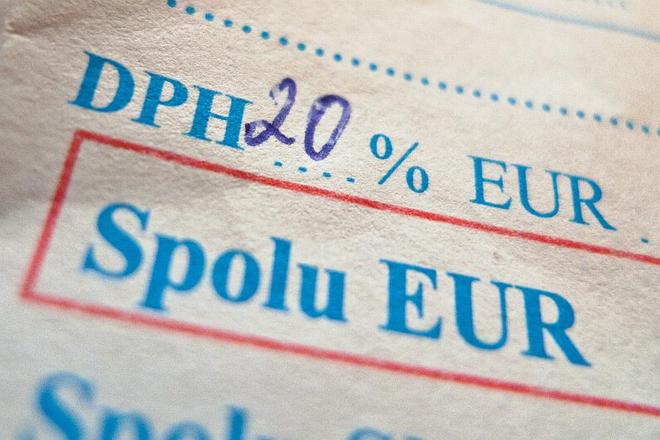 DPH 20 % EUR
Spolu EUR
Spolu